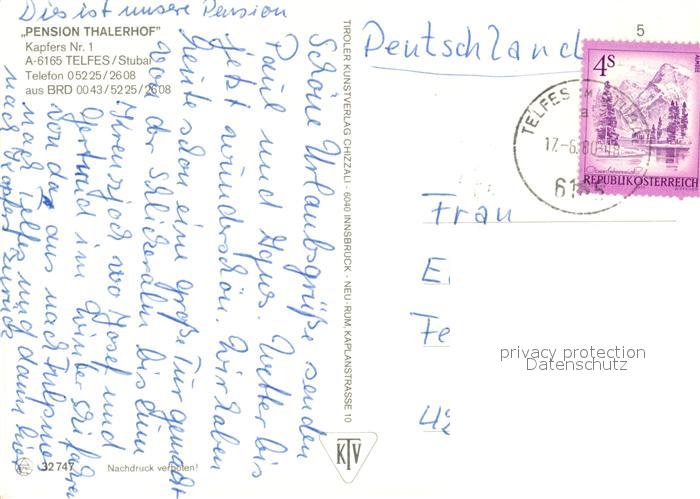 Dies ist unsere Pension
„PENSION THALERHOF"
Kapfers Nr. 1
A-6165 TELFES / Stubai
Telefon 0 52 25 / 26 08
aus BRD 00 43 / 52 25 / 26 08
Schöne Urlaubsgrüße senden
Paul und Agnes. Wetter bis
jetzt wunderschön. Wir haben
heute schon eine große Tur gemacht
von der Schlickeralm bis zum
Kreuzjoch wo Josef und
Gertrud im Winter Ski fahren
von da aus nach
nach Telfes und dann hier
nach Kapfers zurück
32 747
Nachdruck verboten!
TIROLER KUNSTVERLAG CHIZZALI · 6040 INNSBRUCK · NEU-RUM, KAPLANSTRASSE 10
KTV
Deutschland
5
4 S
REPUBLIK ÖSTERREICH
TELFES IM
17.-6.80
6165
Frau
E
Fe
42
privacy protection
Datenschutz